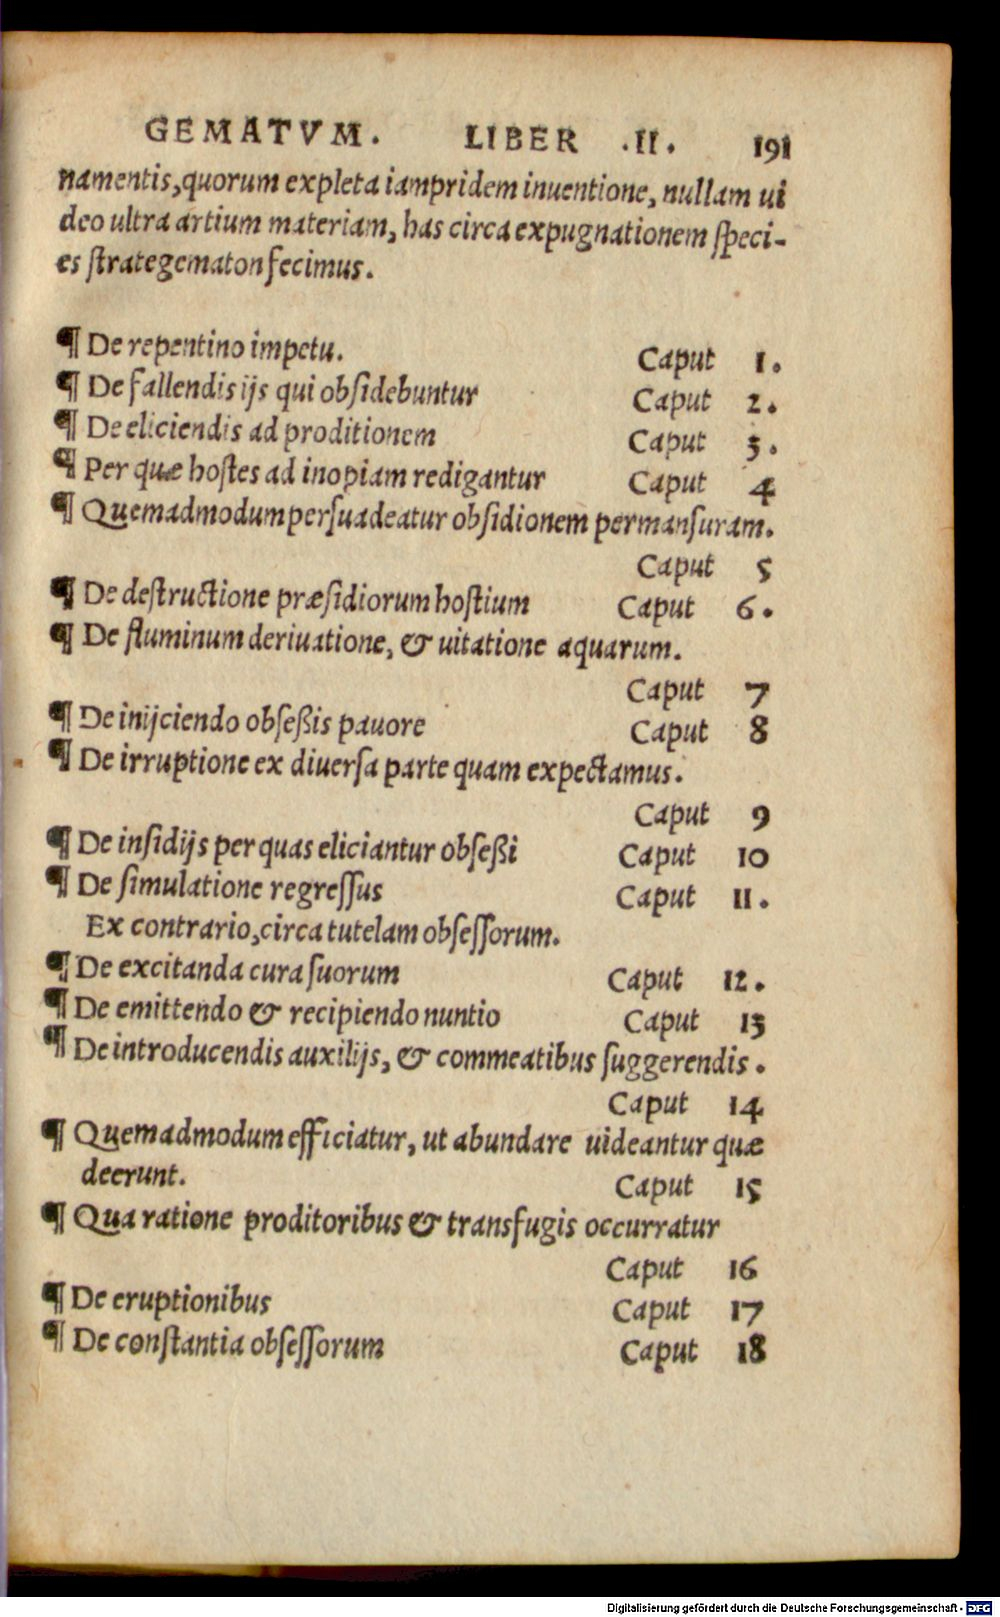 GEMATVM. LIBER .II. 191
namentis,quorum expleta iampridem inuentione, nullam ui
deo ultra artium materiam, has circa expugnationem speci-
es strategematon fecimus.
¶ De repentino impetu. Caput 1.
¶ De fallendis ijs qui obsidebuntur Caput 2.
¶ De eliciendis ad proditionem Caput 3.
¶ Per quæ hostes ad inopiam redigantur Caput 4
¶ Quemadmodum persuadeatur obsidionem permansuram.
Caput 5
¶ De destructione præsidiorum hostium Caput 6.
¶ De fluminum deriuatione, & uitatione aquarum.
Caput 7
¶ De inijciendo obseßis pauore Caput 8
¶ De irruptione ex diuersa parte quam expectamus.
Caput 9
¶ De insidijs per quas eliciantur obseßi Caput 10
¶ De simulatione regressus Caput 11.
Ex contrario,circa tutelam obsessorum.
¶ De excitanda cura suorum Caput 12.
¶ De emittendo & recipiendo nuntio Caput 13
¶ De introducendis auxilijs, & commeatibus suggerendis.
Caput 14
¶ Quemadmodum efficiatur, ut abundare uideantur quæ
deerunt. Caput 15
¶ Qua ratione proditoribus & transfugis occurratur
Caput 16
¶ De eruptionibus Caput 17
¶ De constantia obsessorum Caput 18
Digitalisierung gefördert durch die Deutsche Forschungsgemeinschaft - DFG